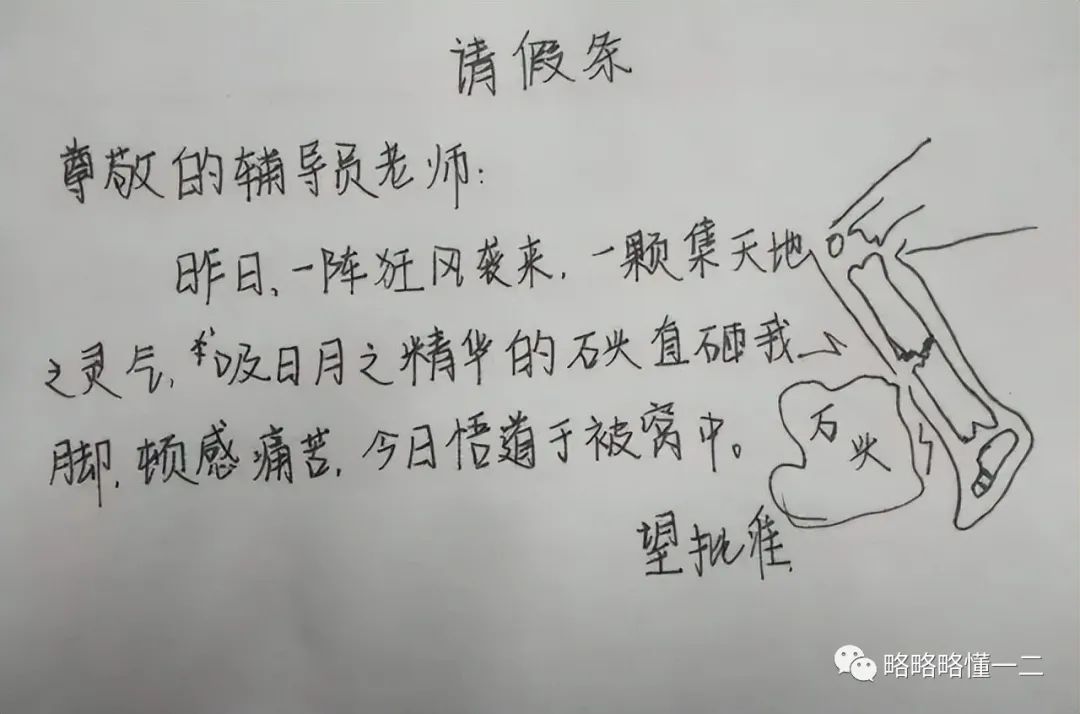 请假条
尊敬的辅导员老师:
昨日,一阵狂风袭来,一颗集天地
之灵气,吸日月之精华的石头直砸我
脚,顿感痛苦,今日悟道于被窝中。
石头
望批准.
略略略懂一二